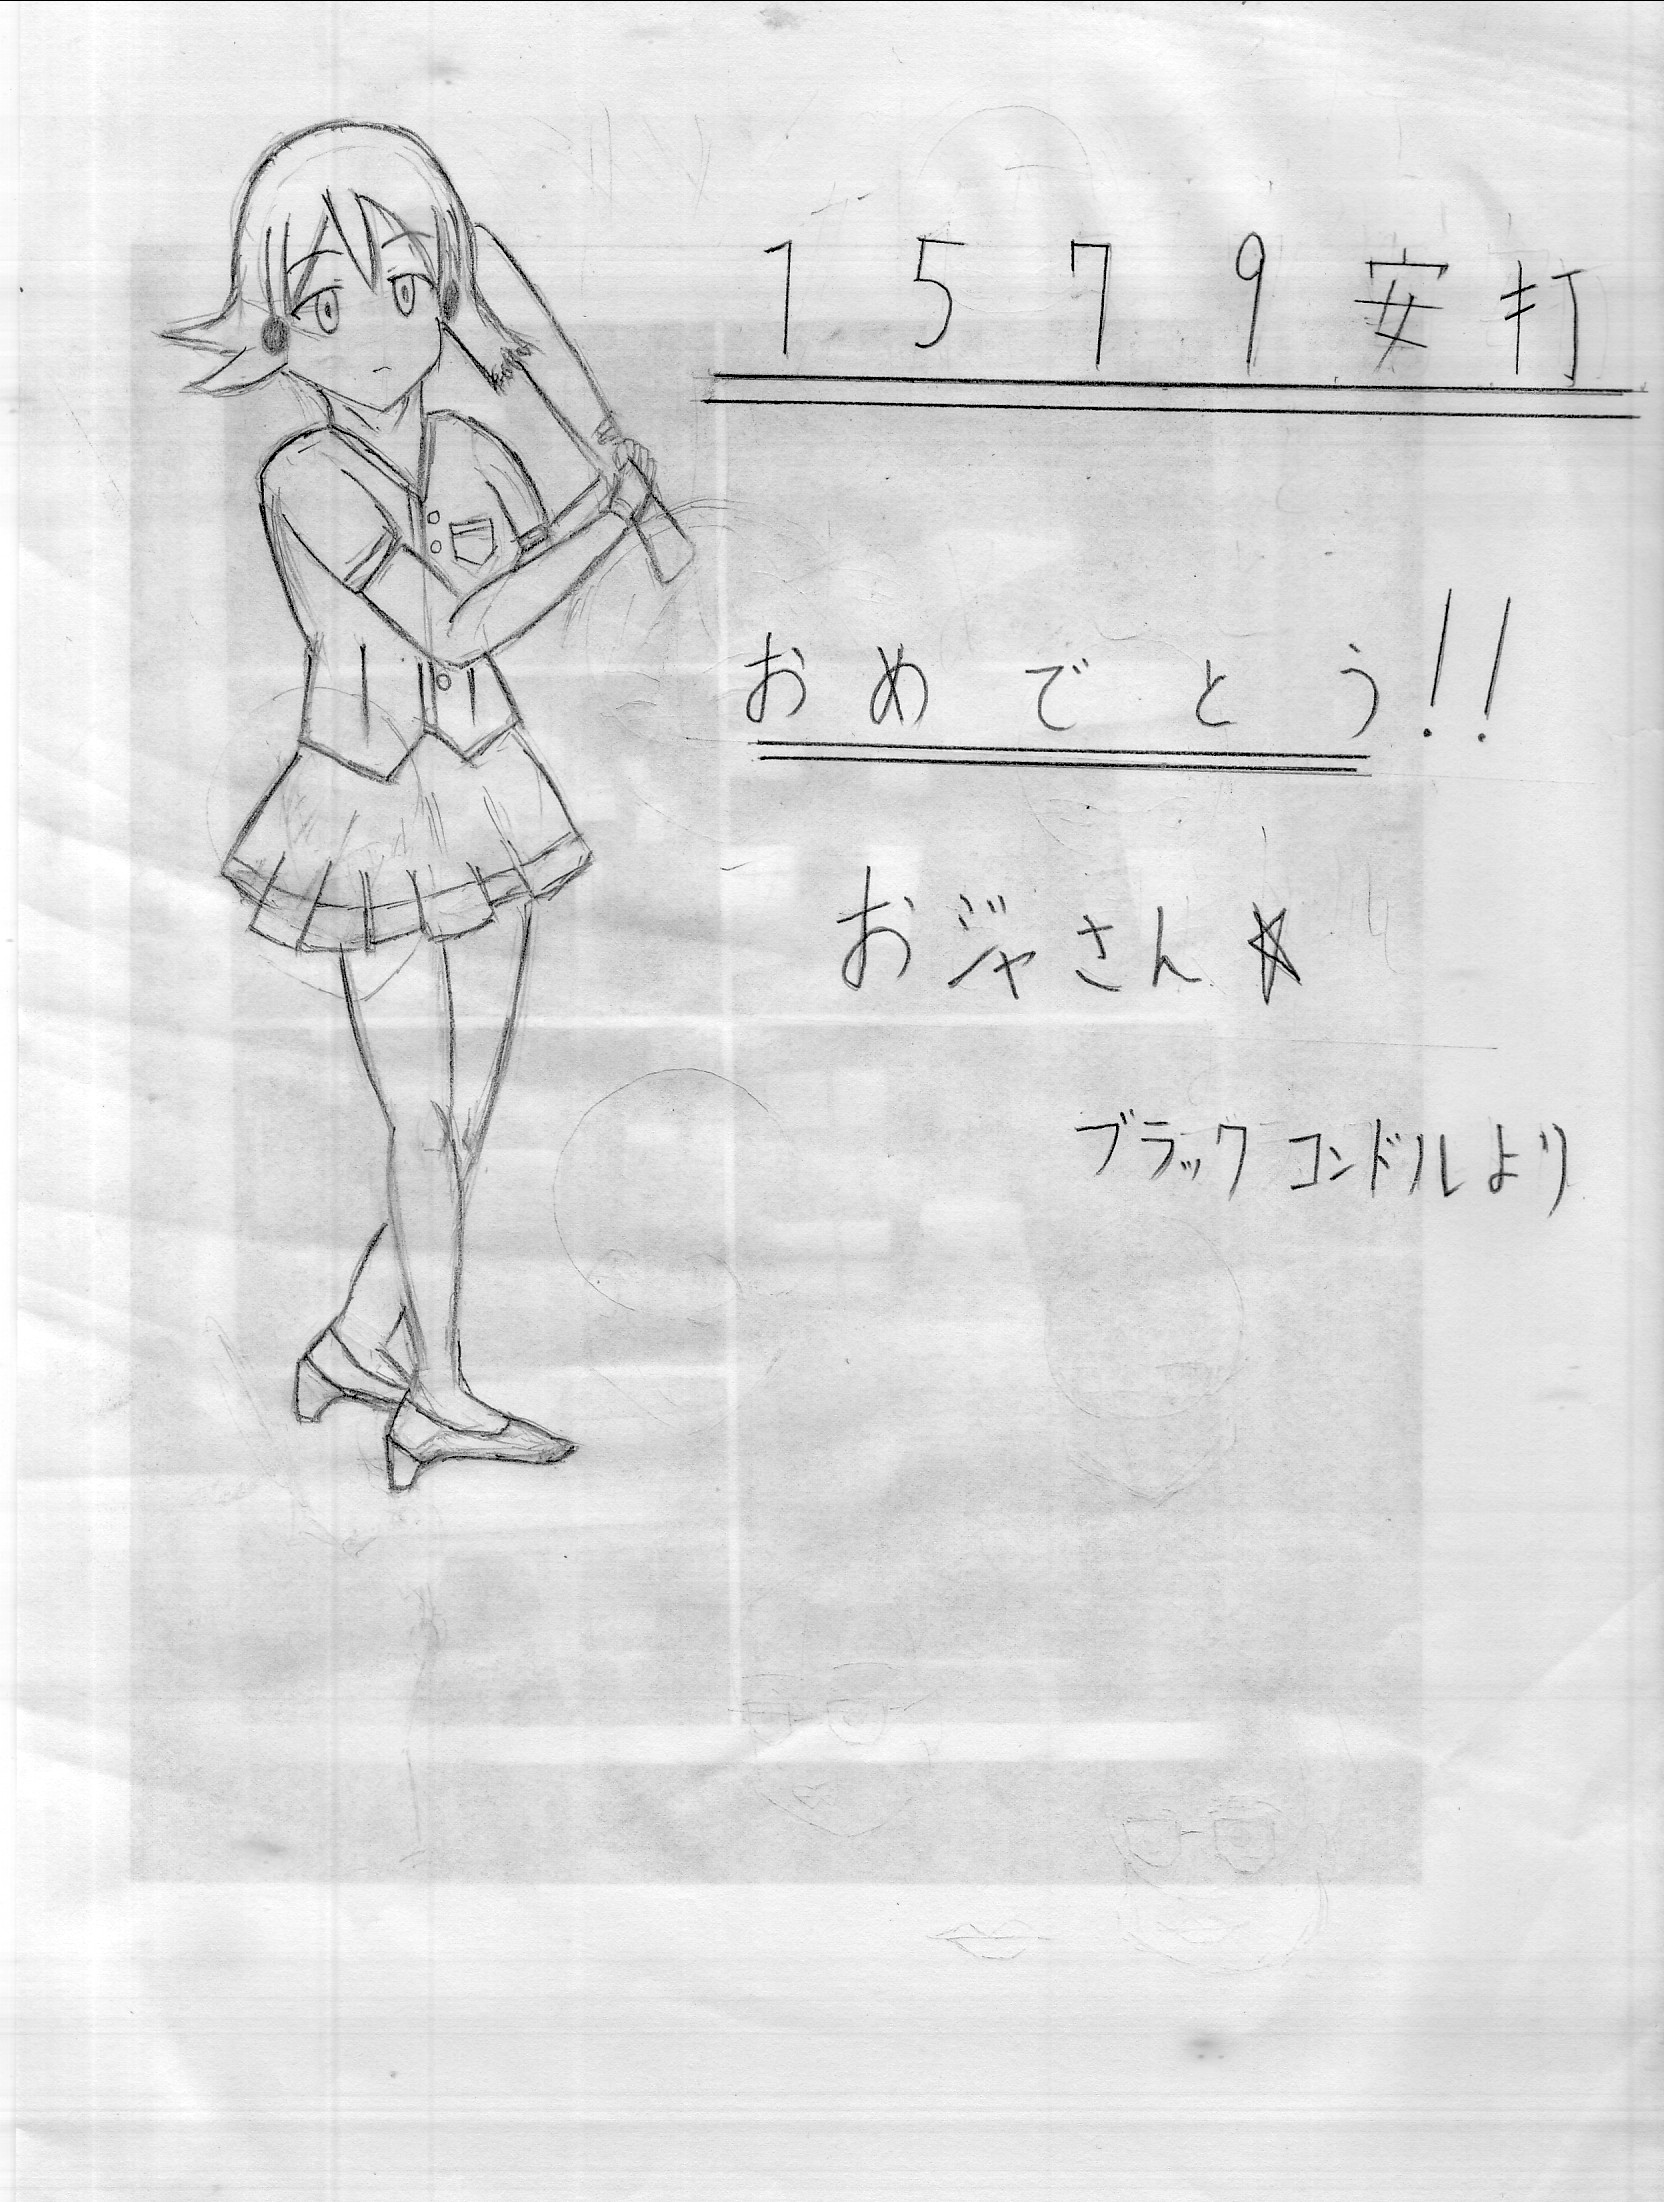 1579安打
おめでとう!!
おジャさん☆
ブラックコンドルより